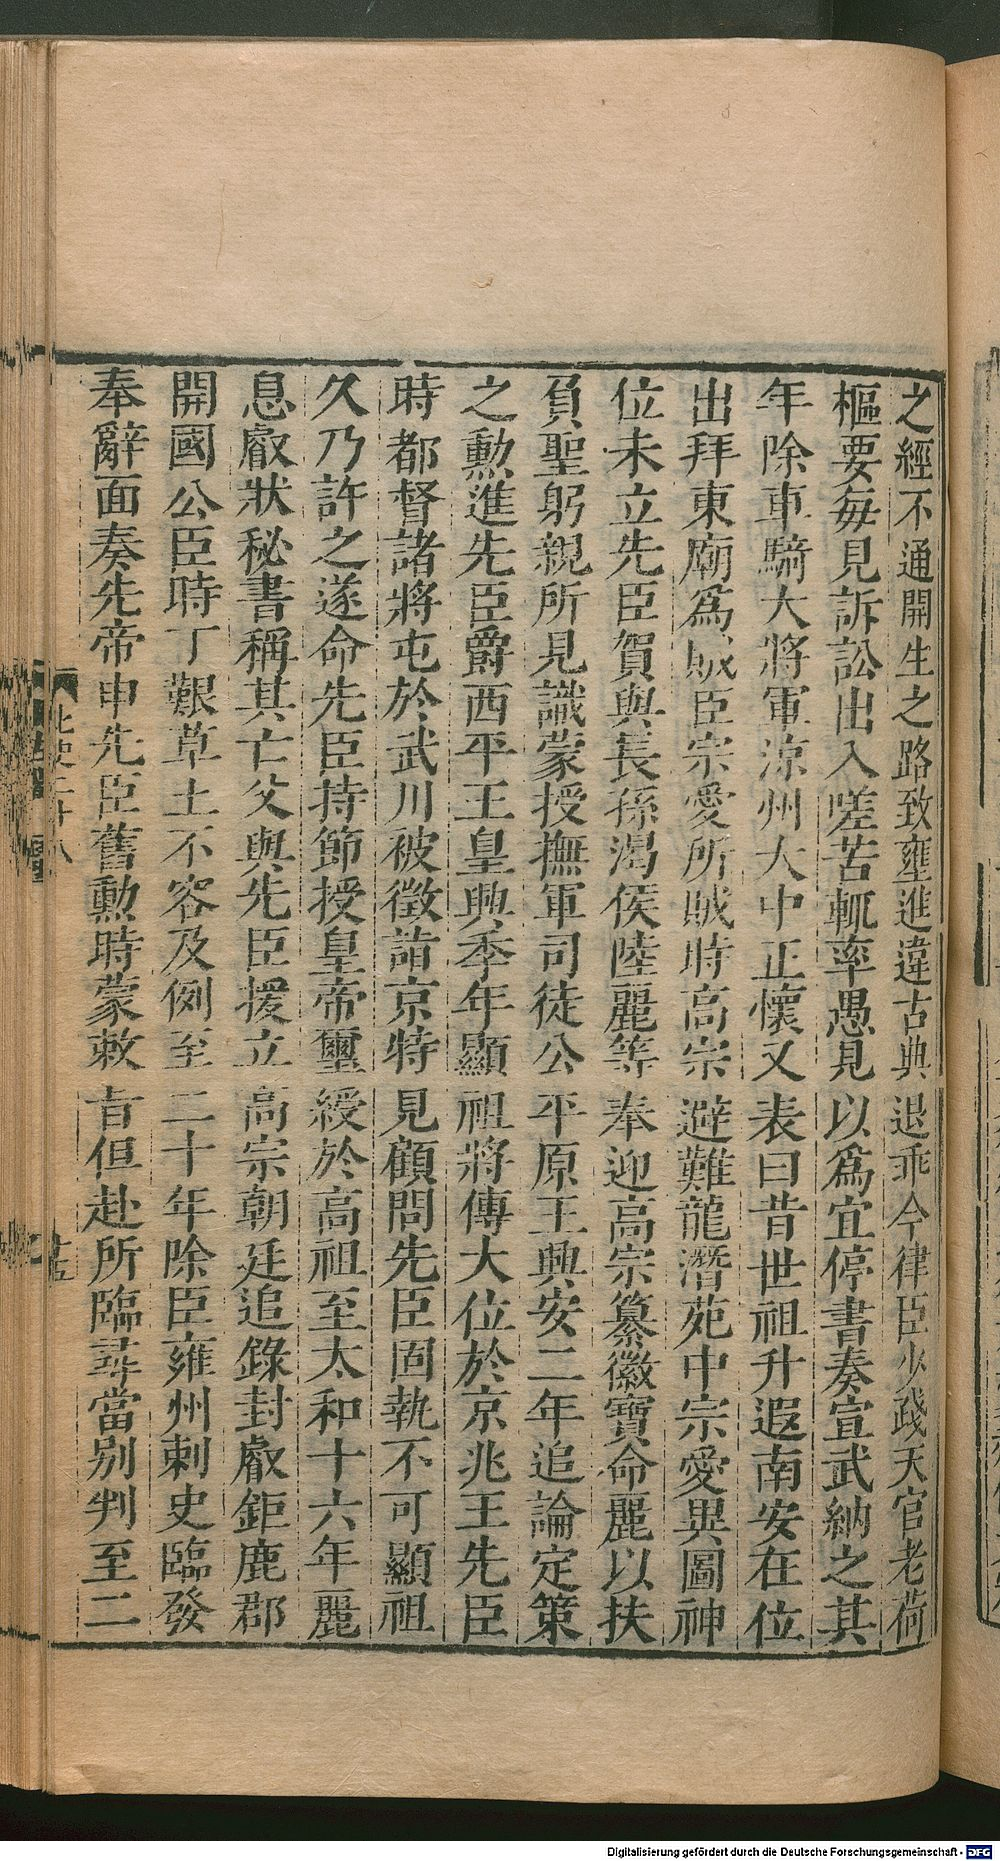 之經不通開生之路致壅進違古典退乖今律臣少踐天官老荷
樞要每見訴訟出入嗟苦輒率愚見以爲宜停書奏宣武納之其
年除車騎大將軍涼州大中正懷又表曰昔世祖升遐南安在位
出拜東廟爲賊臣宗愛所賊時高宗避難龍潛苑中宗愛異圖神
位未立先臣賀與長孫渴侯陸麗等奉迎高宗纂徽寶命麗以扶
負聖躬親所見識蒙授撫軍司徒公平原王興安二年追論定策
之勳進先臣爵西平王皇興季年顯祖將傳大位於京兆王先臣
時都督諸將屯於武川被徵詣京特見顧問先臣固執不可顯祖
久乃許之遂命先臣持節授皇帝璽綬於高祖至太和十六年麗
息叡狀秘書稱其亡父與先臣援立高宗朝廷追錄封叡鉅鹿郡
開國公臣時丁艱草土不容及例至二十年除臣雍州刺史臨發
奉辭面奏先帝申先臣舊勳時蒙敕旨但赴所臨尋當别判至二
北史二十八
十五
Digitalisierung gefördert durch die Deutsche Forschungsgemeinschaft - DFG